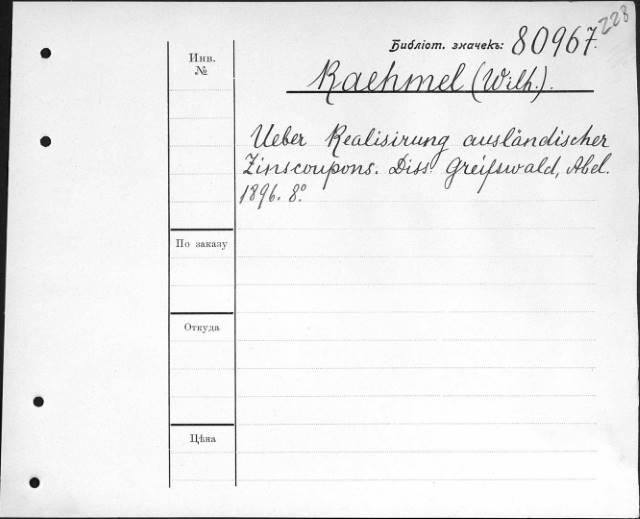 228
Библіот. значекъ: 80967.
Инв.
№
Raehmel (Wilh.).
Ueber Realisirung ausländischer
Zinscoupons. Diss. Greifswald, Abel.
1896. 8°.
По заказу
Откуда
Цѣна